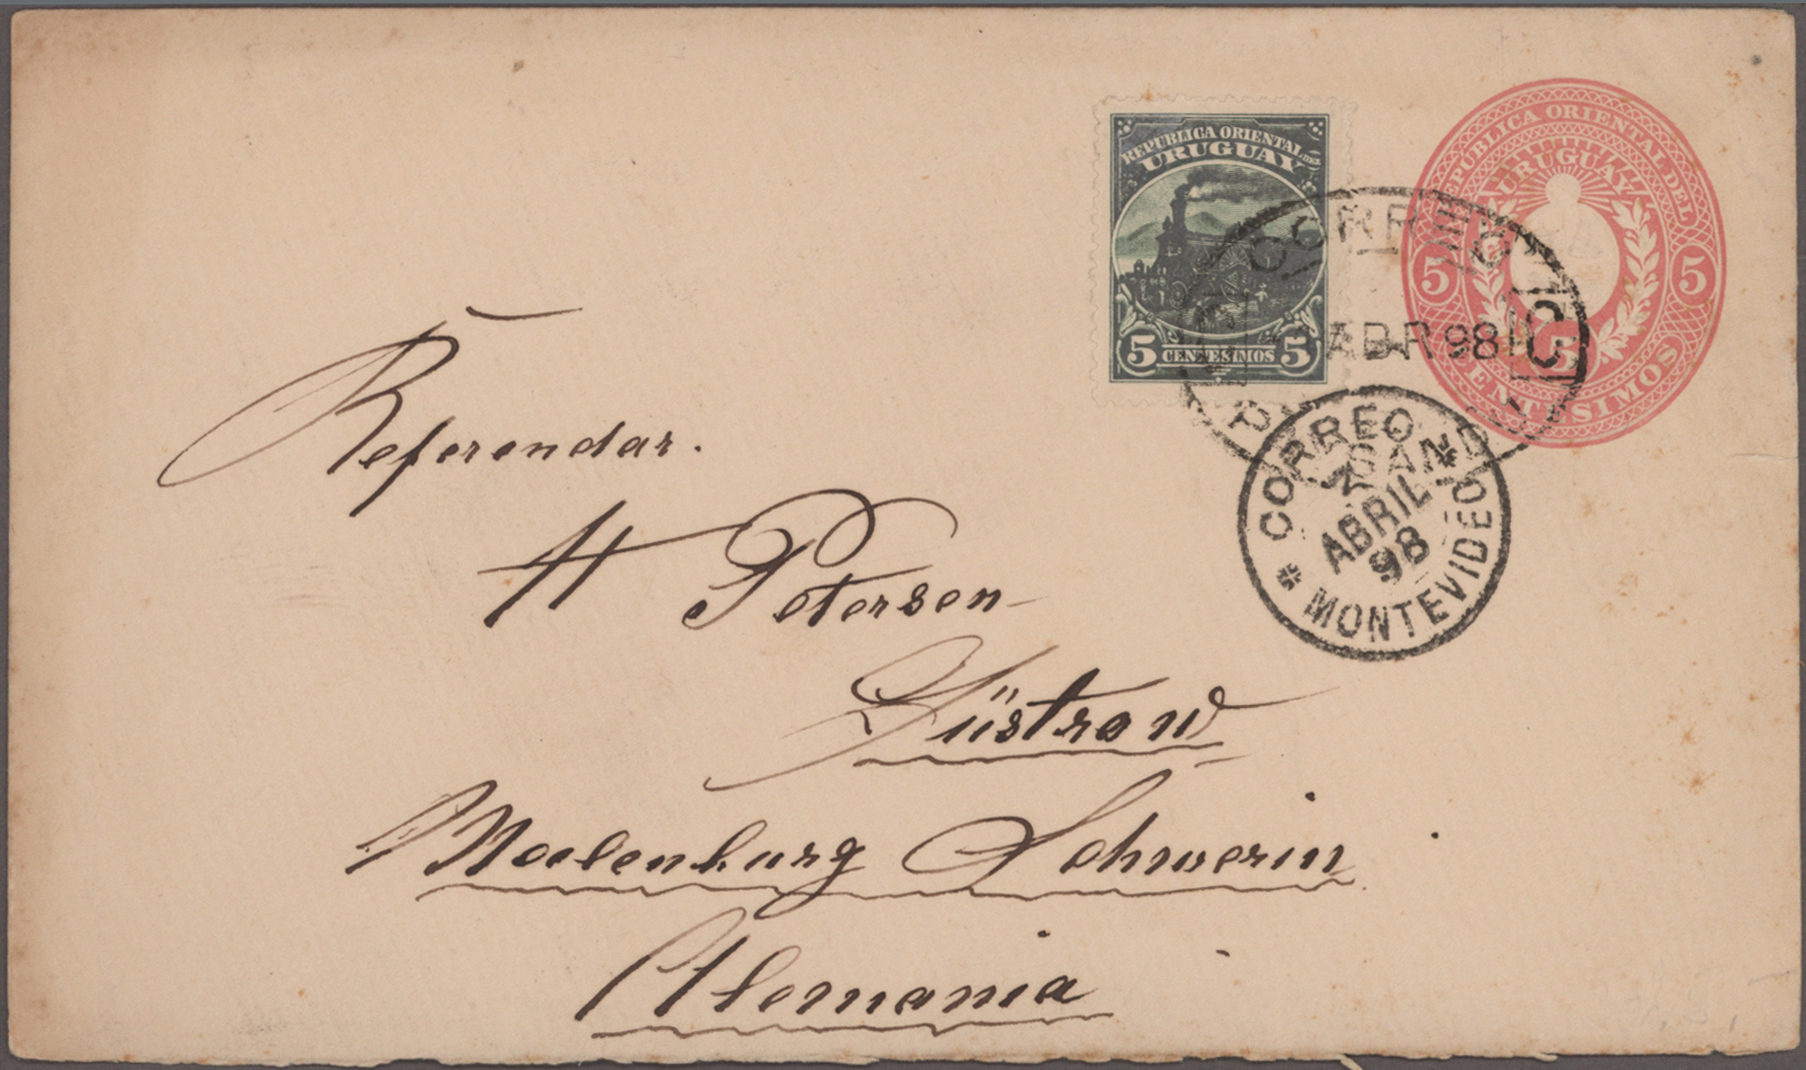 REPUBLICA ORIENTAL DEL
URUGUAY
5 CENTESIMOS 5
REPUBLICA ORIENTAL DEL
URUGUAY
5 5
5
CENTESIMOS
CORREO
ABR 98
CORREO
ABRIL
98
* MONTEVIDEO
Referendar.
H Petersen
Güstrow
Meclenburg Schwerin
Alemania